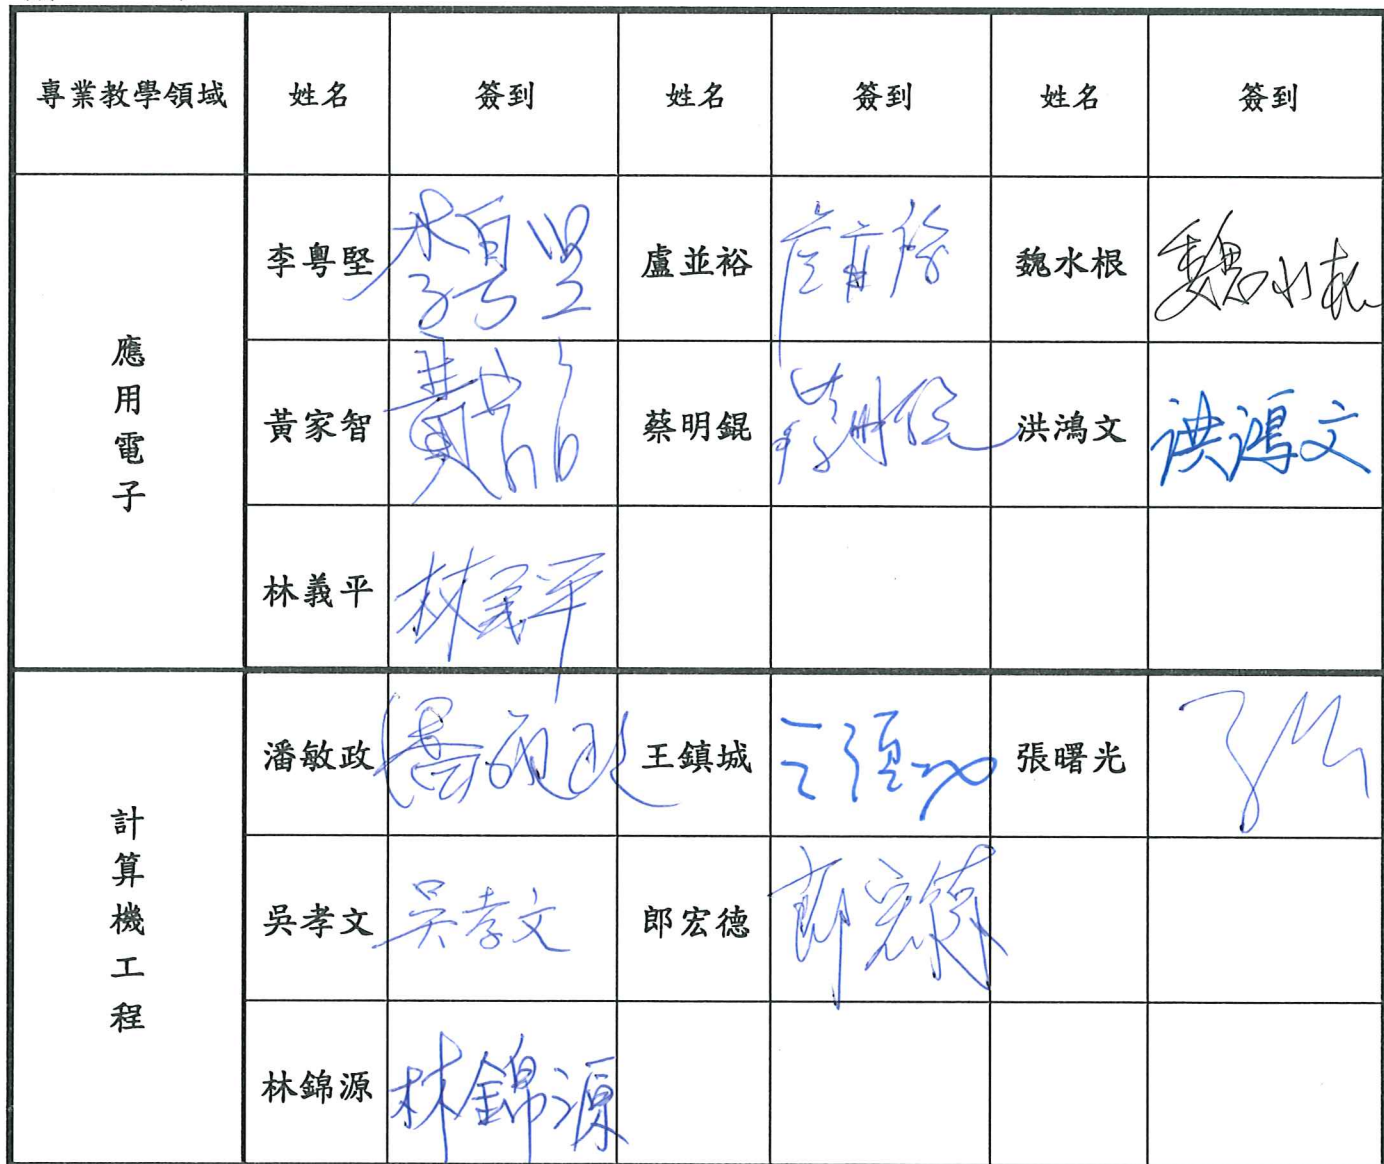 專業教學領域 姓名 簽到 姓名 簽到 姓名 簽到
應用電子
李粵堅 李粵堅 盧並裕 魏水根 魏水根
黃家智 蔡明錕 洪鴻文 洪鴻文
林義平 林義平
計算機工程
潘敏政 潘敏政 王鎮城 張曙光
吳孝文 吳孝文 郎宏德 郎宏德
林錦源 林錦源